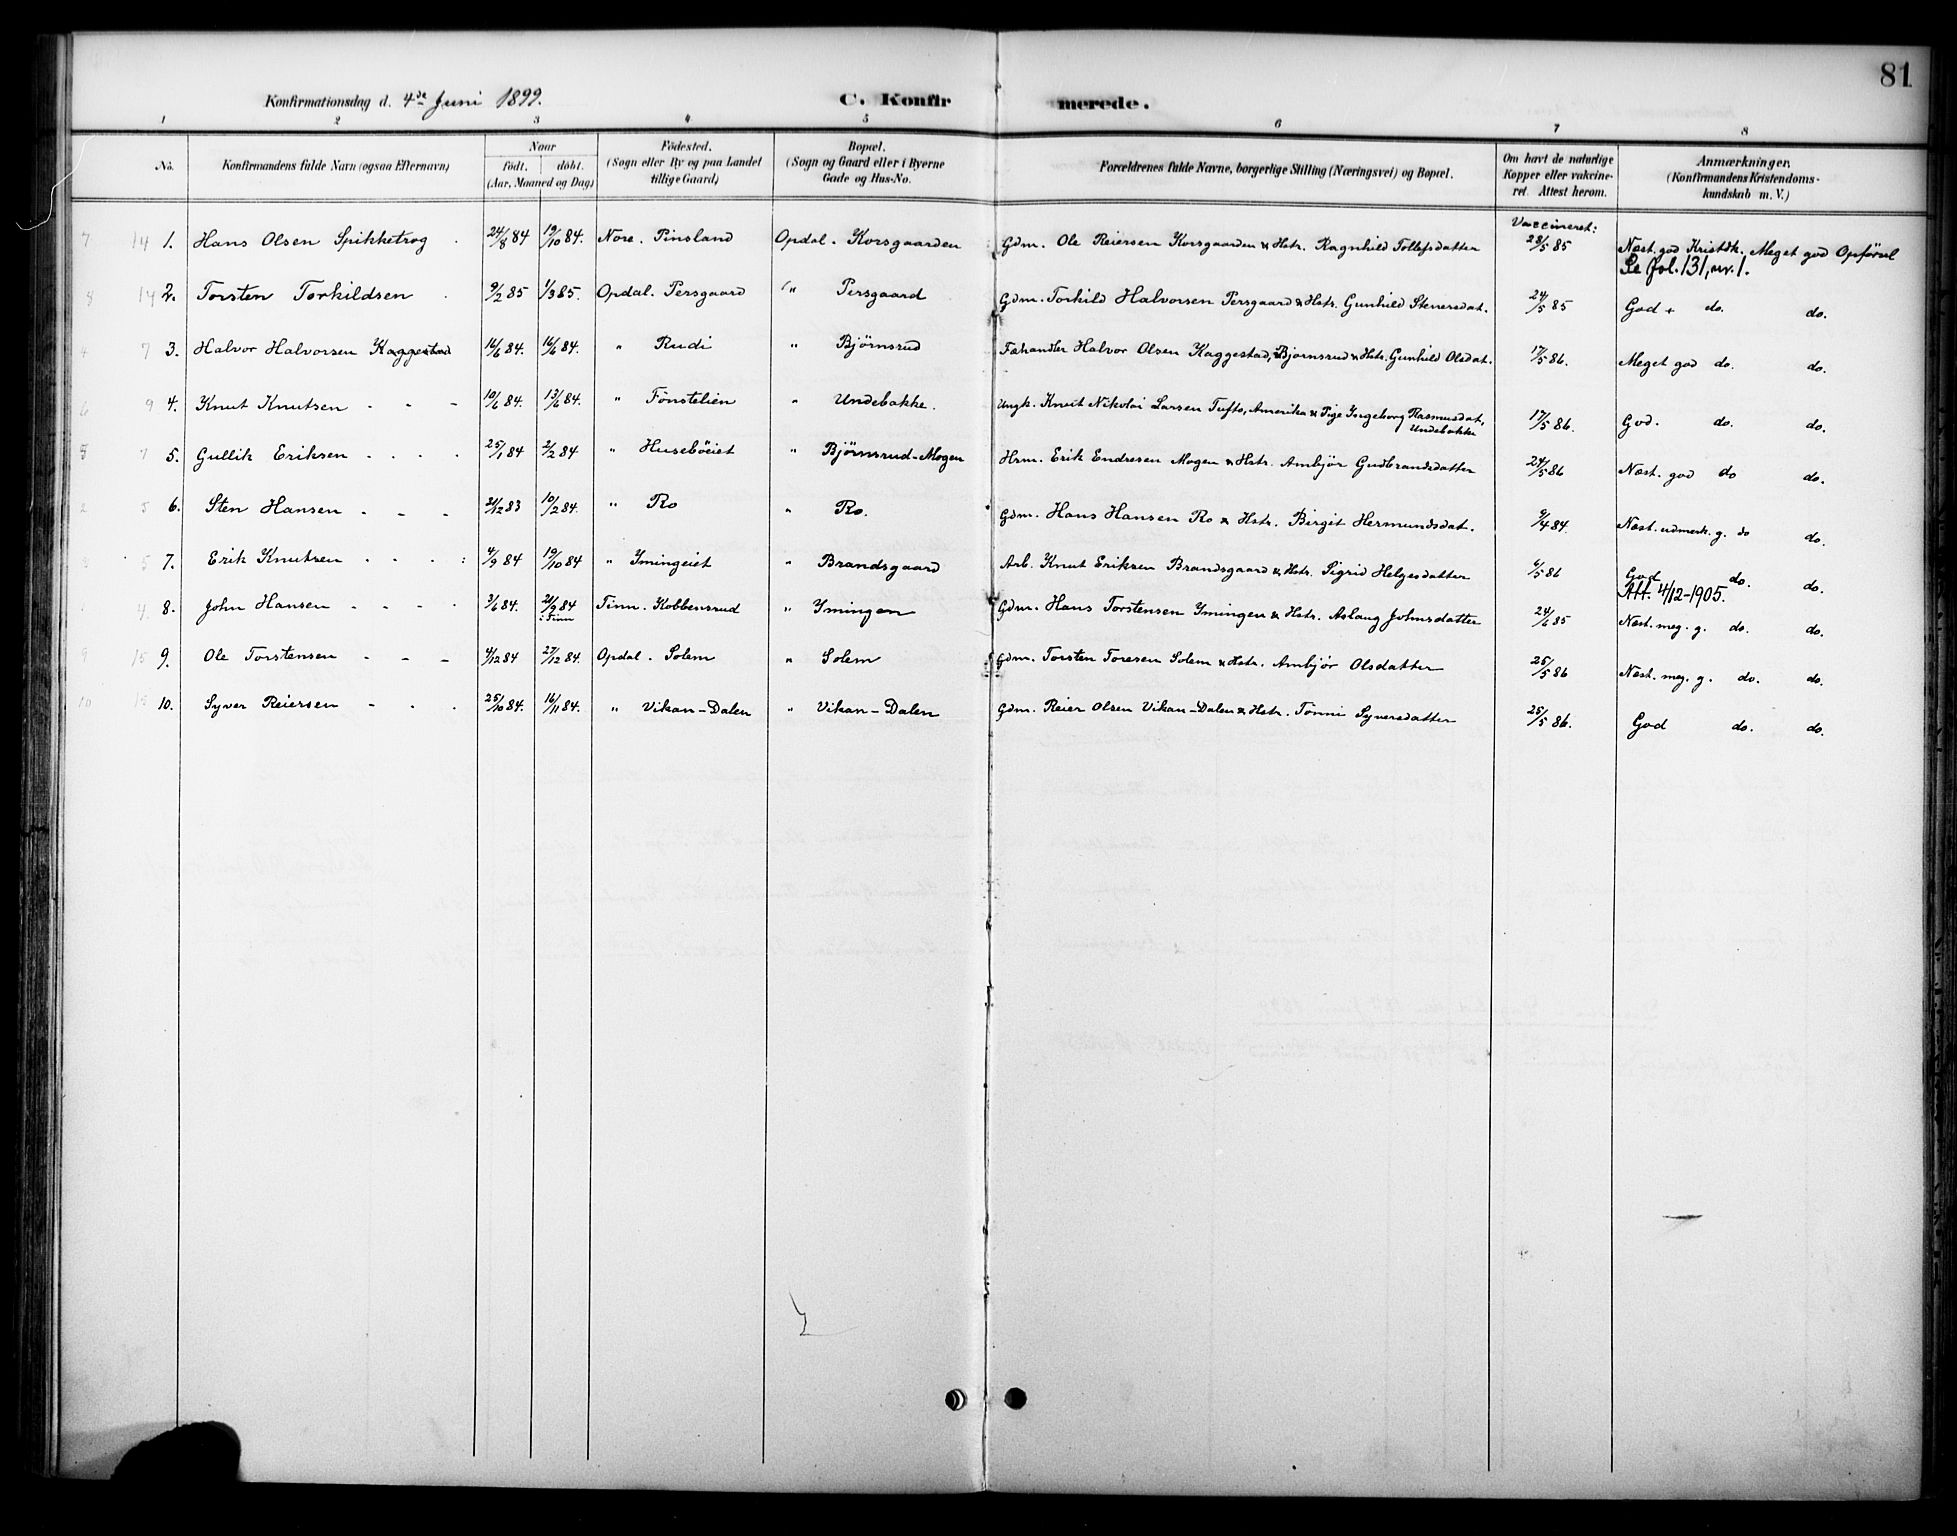 81
Konfirmationsdag d. 4de Juni 1899. C. Konfirmerede.
1 2 3 4 5 6 7 8
No. Konfirmandens fulde Navn (ogsaa Efternavn) Naar født. døbt. (Aar, Maaned og Dag) Fødested. (Sogn eller By og paa Landet tillige Gaard) Bopæl. (Sogn og Gaard eller i Byerne Gade og Hus-No. Forældrenes fulde Navne, borgerlige Stilling (Næringsvei) og Bopæl. Om havt de naturlige Kopper eller vakcineret. Attest herom. Anmærkninger. (Konfirmandens Kristendomskundskab m. V.)
Vaccineret:
7 14 1. Hans Olsen Spikketrog 24/8 84 19/10 84. Nore. Pinsland Opdal. Korsgaarden Gdm. Ole Reiersen Korsgaarden & Hstr. Ragnhild Tollefsdatter 28/5 85 Næst. god Kristdk. Meget god Opførsel
Se fol. 131, nr. 1.
8 14 2. Torsten Torkildsen 9/2 85 1/3 85. Opdal. Persgaard " Persgaard Gdm. Torkild Halvorsen Persgaard & Hstr. Gunhild Steversdat. 24/5 85 God + do. do.
4 7 3. Halvor Halvorsen Kaggestad 16/6 84. 16/6 84. " Rudi " Bjørnsrud Fæhandler Halvor Olsen Kaggestad, Bjørnsrud & Hstr. Gunhild Olsdat. 17/5 86. Meget god do. do.
6 9 4. Knut Knutsen - - - 10/6 84. 13/6 84. " Fønstelien " Undebakke. Ungk. Knut Nikolai Larsen Tufto, Amerika & Pige Ingeborg Rasmusdat, Undebakke 17/5 86. God. do. do.
5 7 5. Gullik Eriksen - - - - 25/1 84 2/2 84 " Husebøeiet " Bjørnsrud-Mogen Hrm. Erik Endresen Mogen & Hstr. Ambjør Gudbrandsdatter 24/5 86 Næst. god do do.
2 5 6. Sten Hansen - - - /12 83 10/2 84. " Ro " Ro. Gdm. Hans Hansen Ro & Hstr. Birgit Hermundsdat. /4 84. Næst. udmerk. g. do do.
5 7. Erik Knutsen - - - : 4/9 84 19/10 84 " Ymingeiet " Brandsgaard Arb. Knut Eriksen Brandsgaard & Hstr. Sigrid Helgesdatter 6/5 86 God do. do.
Att. 4/12-1905.
4. 8. John Hansen - - - - 3/6 84. 21/9 84 i Tinn Tinn. Kobbensrud " Ymingen Gdm. Hans Torstensen Ymingen & Hstr. Aslaug Johnsdatter 24/6 85 Næst. meg. g. do. do.
9 15 9. Ole Torstensen - - - 4/12 84 27/12 84. Opdal. Solem " Solem Gdm. Torsten Toresen Solem & Hstr. Ambjør Olsdatter 25/5 86 Næst. meg. g. do. do.
10 15 10. Syver Reiersen - - - 25/10 84. 16/11 84. " Vikan-Dalen " Vikan-Dalen Gdm. Reier Olsen Vikan-Dalen & Hstr. Tonni Syversdatter 25/5 86. God do. do.